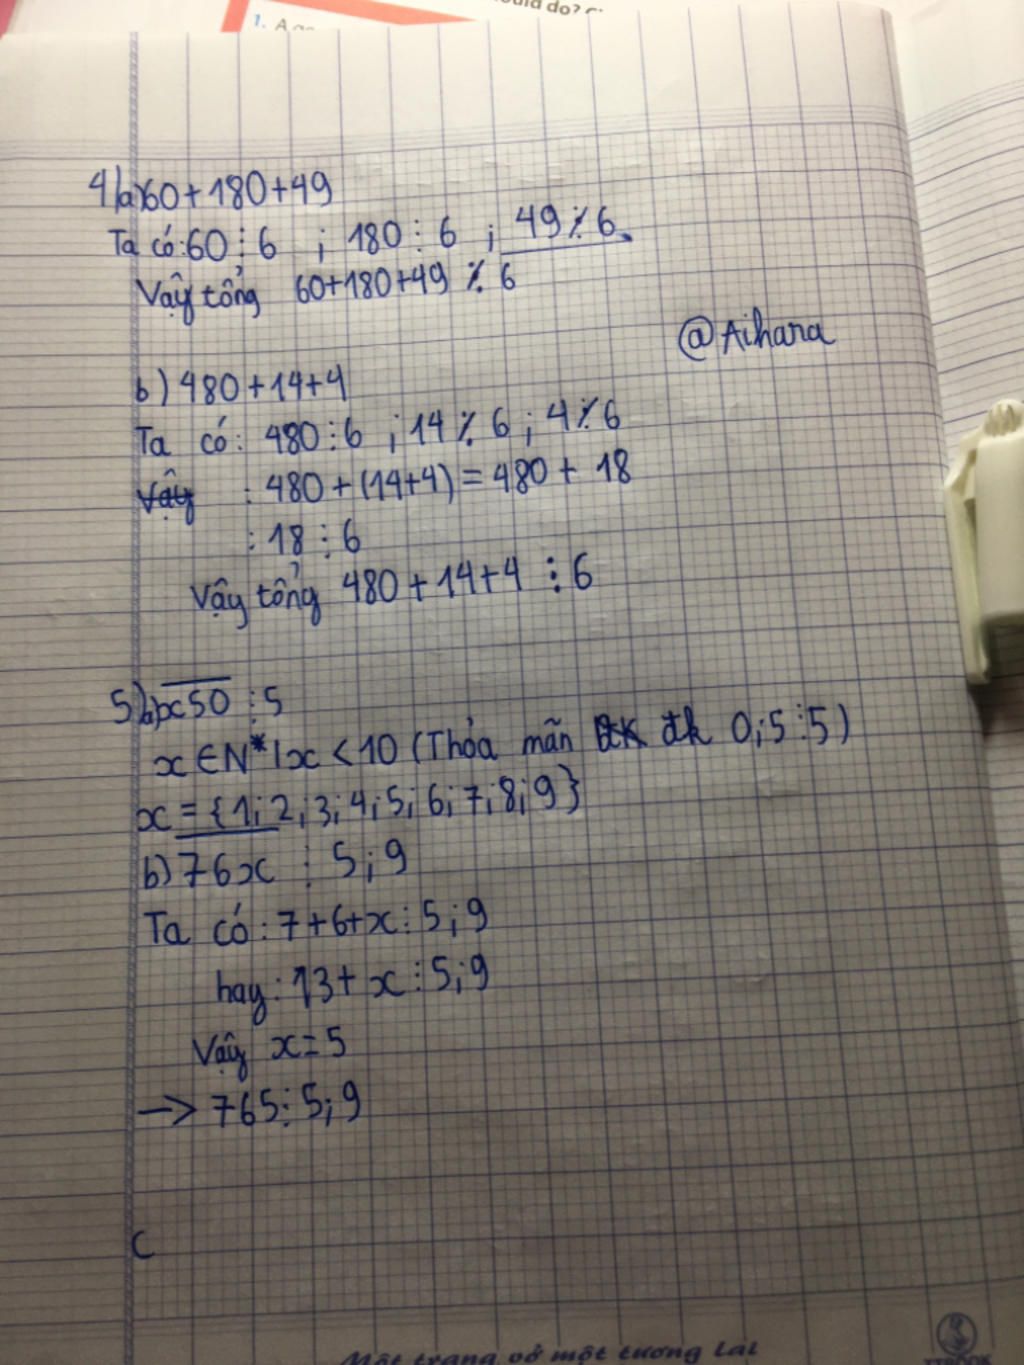 1. A
ould do?
4)a)60+180+49
Ta có:60⋮6 ; 180⋮6 ; 49⋮̸6
Vậy tổng 60+180+49 ⋮̸ 6
@Aihara
b) 480+14+4
Ta có: 480⋮6 ; 14⋮̸6 ; 4⋮̸6
: 480+(14+4)=480+18
: 18⋮6
Vậy tổng 480+14+4 ⋮6
5)a)x50⋮5
x∈N*|x<10 (Thỏa mãn đk 0;5⋮5)
x={1;2;3;4;5;6;7;8;9}
b)76x ⋮ 5;9
Ta có:7+6+x⋮5;9
hay:13+x⋮5;9
Vậy x=5
→ 765⋮5;9
c
Một trang vở một tương lai